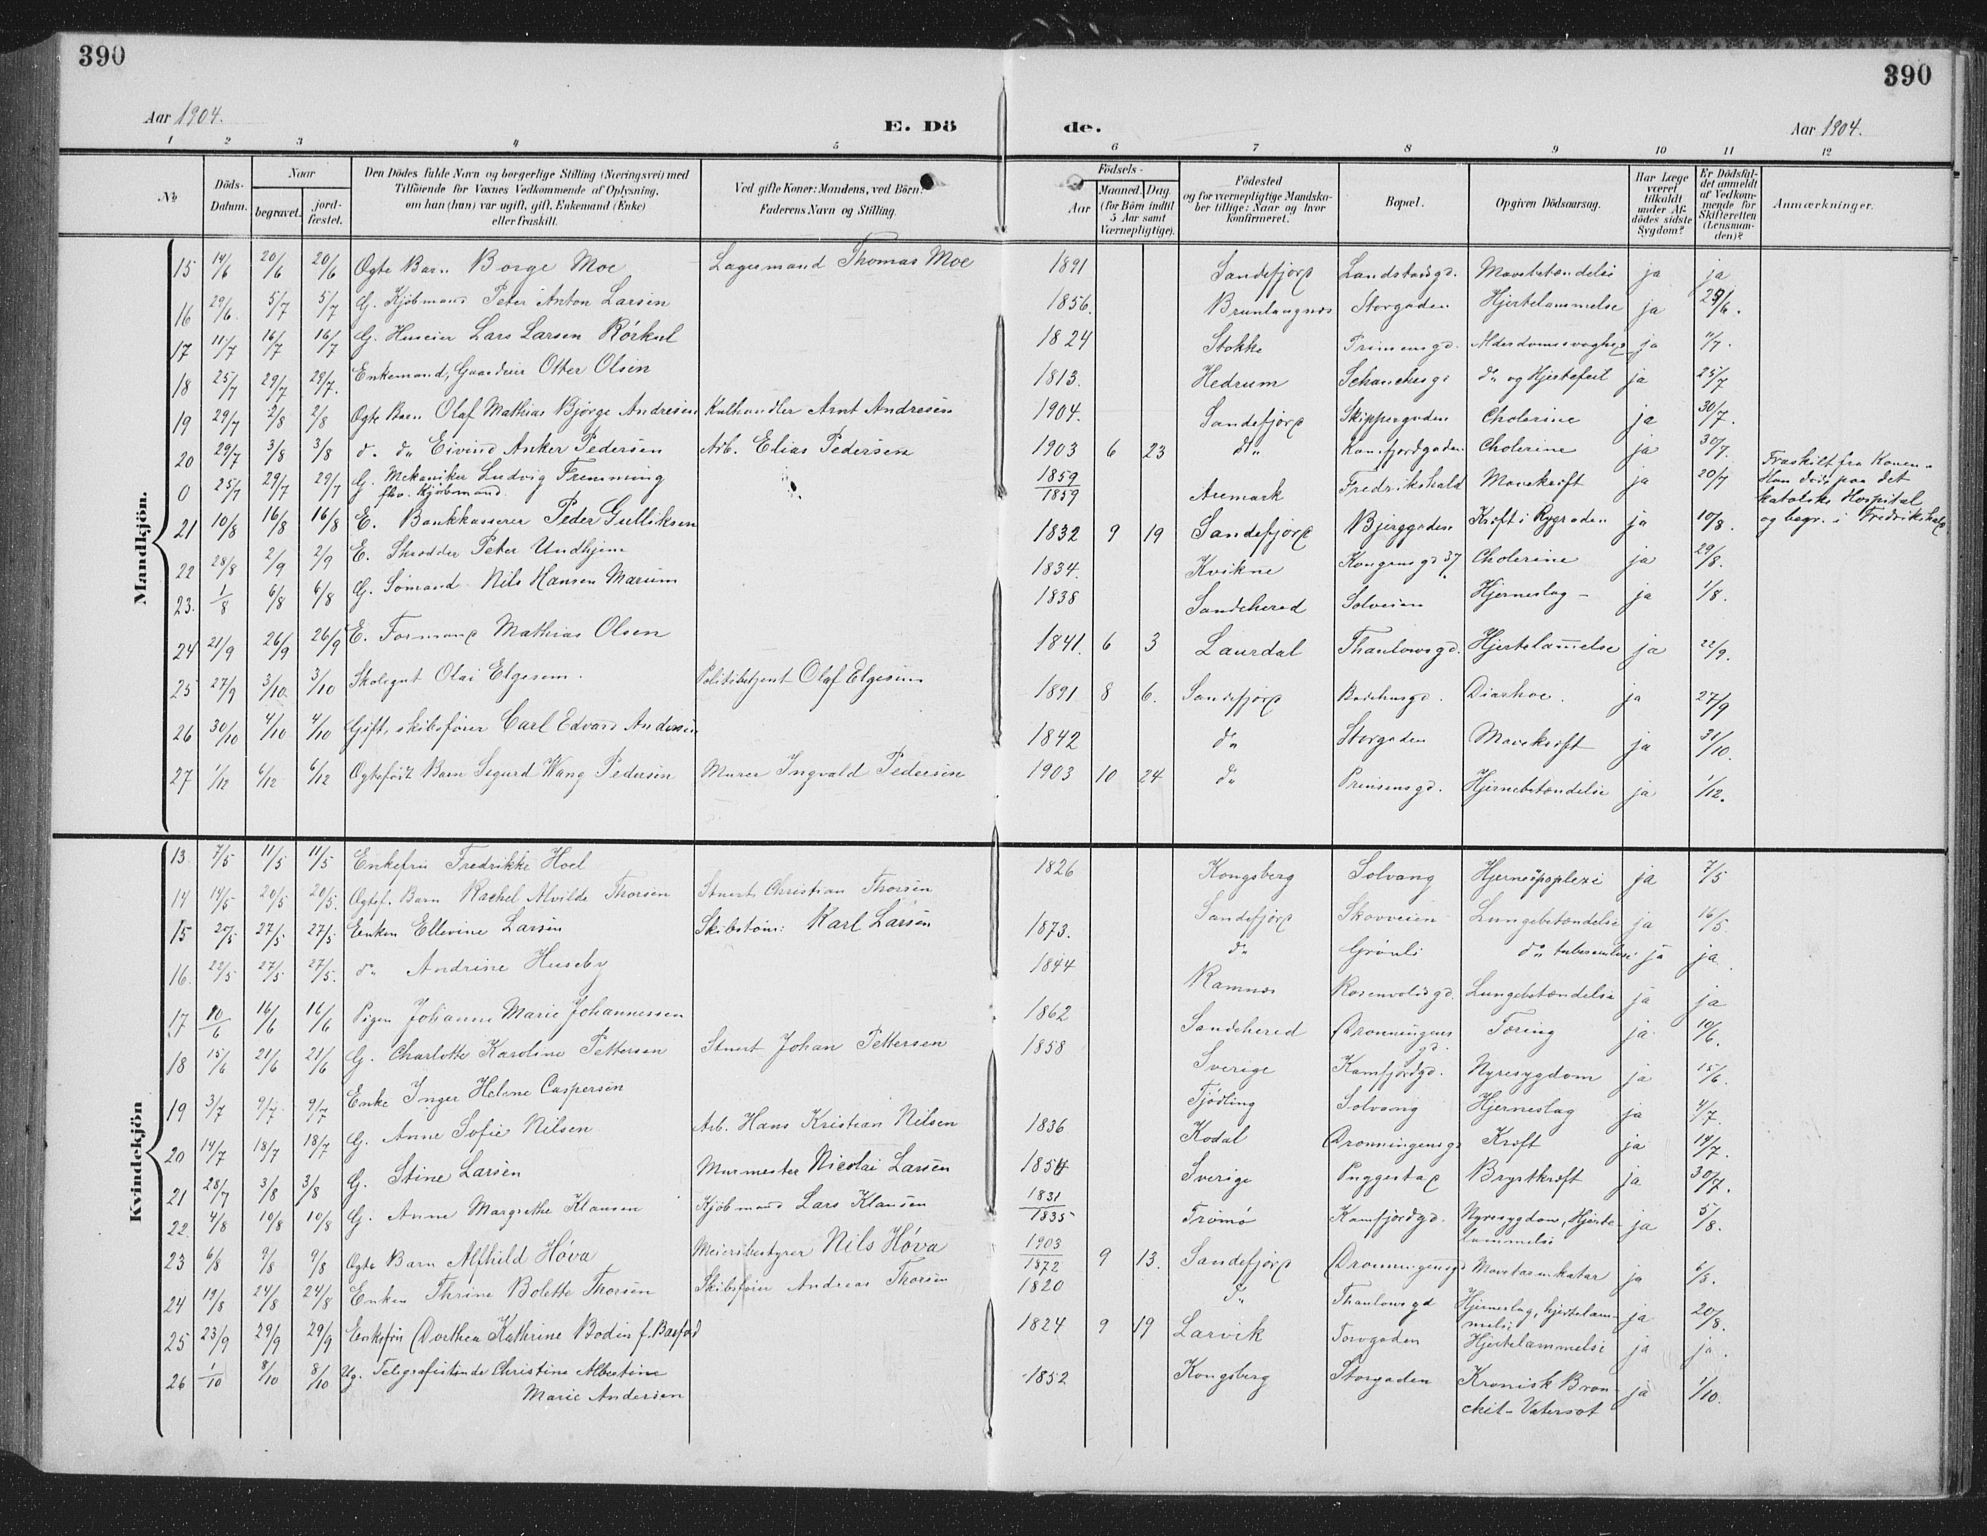 390
390
Aar 1904.
E. Dö de.
Aar 1904.
1 2 3 4 5 6 7 8 9 10 11 12
No.
Döds-Datum.
Naar
begravet.
jordfæstet.
Den Dödes fulde Navn og borgerlige Stilling (Næringsvei) med
Tilföiende for Voxnes Vedkommende af Oplysning,
om han (hun) var ugift, gift, Enkemand (Enke)
eller fraskilt.
Ved gifte Koner: Mandens, ved Börn:
Faderens Navn og Stilling.
Födsels-
Aar
Maaned. Dag.
(for Börn indtil
5 Aar samt
Værnepligtige).
Födested
og for værnepligtige Mandsko-
ber tillige: Naar og hvor
konfirmeret.
Bopæl.
Opgiven Dödsaarsag.
Har Læge
været
tilkaldt
under Af-
dödes sidste
Sygdom?
Er Dödsfal-
det anmeldt
af Vedkom-
mende for
Skifteretten
(Lensman-
den)?
Anmærkninger.
Mandkjön.
15 14/6 20/6 20/6 Ogte Barn Borge Moe Lagesmand Thomas Moe 1891 Sandefjord Landstadsgd. Mavebetændelse ja ja
16 29/6 5/7 5/7 G. Kjöbmand Peter Anton Larsen 1856. Brunlangnes Storgaden Hjertelammelse ja 29/6.
17 11/7 16/7 16/7 G. Huseier Lars Larsen Rörkul 1824 Stokke Prinsensgd. Alderdomssvaghed ja 11/7.
18 25/7 29/7 29/7. Enkemand, Gaardeier Otter Olsen 1813. Hedrum Schanchesgd do og Hjertefeil ja 25/7
19 29/7 2/8 2/8 Ogte Barn Olaf Mathias Bjørge Andresen Kulhandler Arnt Andresen 1904. Sandefjord Skippergaden Cholerine ja 30/7.
20 29/7 3/8 3/8 do do Eivind Anker Pedersen Arb. Elias Pedersen 1903 6 23 do Kamfjordgaden Cholerine ja 30/7.
0 25/7 29/7 29/7 G. Mekaniker Ludvig Fremming
fhv. Kjöbmand. 1859
1859 Aremark Fredrikshald Mavekræft ja 20/7 Fraskilt fra Konen.
Han döde paa det
katolske Hospital
og begr. i Fredrikshald.
21 10/8 16/8 16/8 E. Bankkasserer Peder Gulliksen 1832 9 19 Sandefjord Bjerggaden Kræft i Rygraden ja 10/8.
22 28/8 2/9 2/9 E. Skrædder Peter Undhjem 1834. Kvikne Kongensgd 37. Cholerine ja 29/8.
23. 1/8 6/8 6/8 G. Sömand Nils Hansen Marum 1838 Sandeherad Solveien Hjerneslag - ja 1/8.
24 21/9 26/9 26/9 E. Formand Mathias Olsen 1841. 6 3 Laurdal Thaulowsgd. Hjertelammelse ja 22/9.
25 27/9 3/10. 3/10 Skolegut Olai Elgesem. Politibetjent Olaf Elgesem 1891 8 6. Sandefjord Badehusgd. Diarhoe. ja 27/9
26 30/10 4/10 4/10 Gift, skibsförer Carl Edvard Andersen 1842 do Storgaden Mavekræft ja 31/10.
27 1/12 6/12 6/12 Ogtefödt Barn Sigurd Wang Pedersen Murer Ingvald Pedersen 1903 10 24 do Prinsensgd. Hjernebetændelse ja 1/12.
Kvindekjön
13 7/5 11/5 11/5 Enkefru Fredrikke Hoel 1826 Kongsberg Solvang Hjerneapoplexi ja 7/5
14 14/5 20/5 20/5. Ogtef. Barn Rachel Alvilde Thorsen Stuert Christian Thorsen Sandefjord Skovveien Lungebetændelse ja 16/5.
15 20/5 27/5 27/5 Enken Ellevine Larsen Skibstöm: Karl Larsen 1873. do Grönli do tuberculosi ja ja
16. 22/5 27/5 27/5. do Andrine Huseby 1844 Ramnæs Rosenvoldsgd. Lungebetændelse ja ja
17 10/6 16/6 16/6 Pigen Johanne Marie Johannessen 1862 Sandeherad Dronningens
gd. Tæring ja 10/6.
18 15/6 21/6 21/6 G. Charlotte Karoline Pettersen Stuert Johan Pettersen 1858 Sverige Kamfjordgd. Nyresygdom ja 15/6.
19 3/7 9/7 9/7 Enke Inger Helene Caspersen Tjödling Solvang Hjerneslag ja 4/7.
20 14/7 18/7 18/7 G. Anne Sofie Nilsen Arb. Hans Kristian Nilsen 1836 Kodal Dronningensgd Kræft ja 14/7.
21 28/7 3/8 3/8 G. Stine Larsen Murmester Nicolai Larsen 1854 Sverige Puggestad Brystkræft ja 30/7.
22. 4/8 10/8 10/8 G. Anne Margrethe Klausen Kjöbmand Lars Klausen 1831
1835 Tromö Kamfjordgd. Nyresygdom, Hjerte-
lammelse ja 5/8.
23 6/8 9/8 9/8 Ogte Barn Alfhild Höva Meieribestyrer Nils Höva 1903
1872 9 13. Sandefjord Dronningensgd Mavetarmkatar ja 6/8.
24 19/8 24/8 24/8 Enken Thrine Bolette Thorsen Skibsförer Andreas Thorsen 1820 do Thaulowsgd Hjerneslag, hjertelam-
melse ja 20/8.
25 23/9 29/9 29/9 Enkefru Dorthea Kathrine Bodin f. Basfod 1824 9 19 Larvik Torvgaden Hjertelammelse ja ja.
26 1/10 8/10 8/10 Ug. Telegrafistinde Christine Albertine
Marie Andersen 1852 Kongsberg Storgaden Kronisk Bron-
chit - Vatersot ja 1/10.